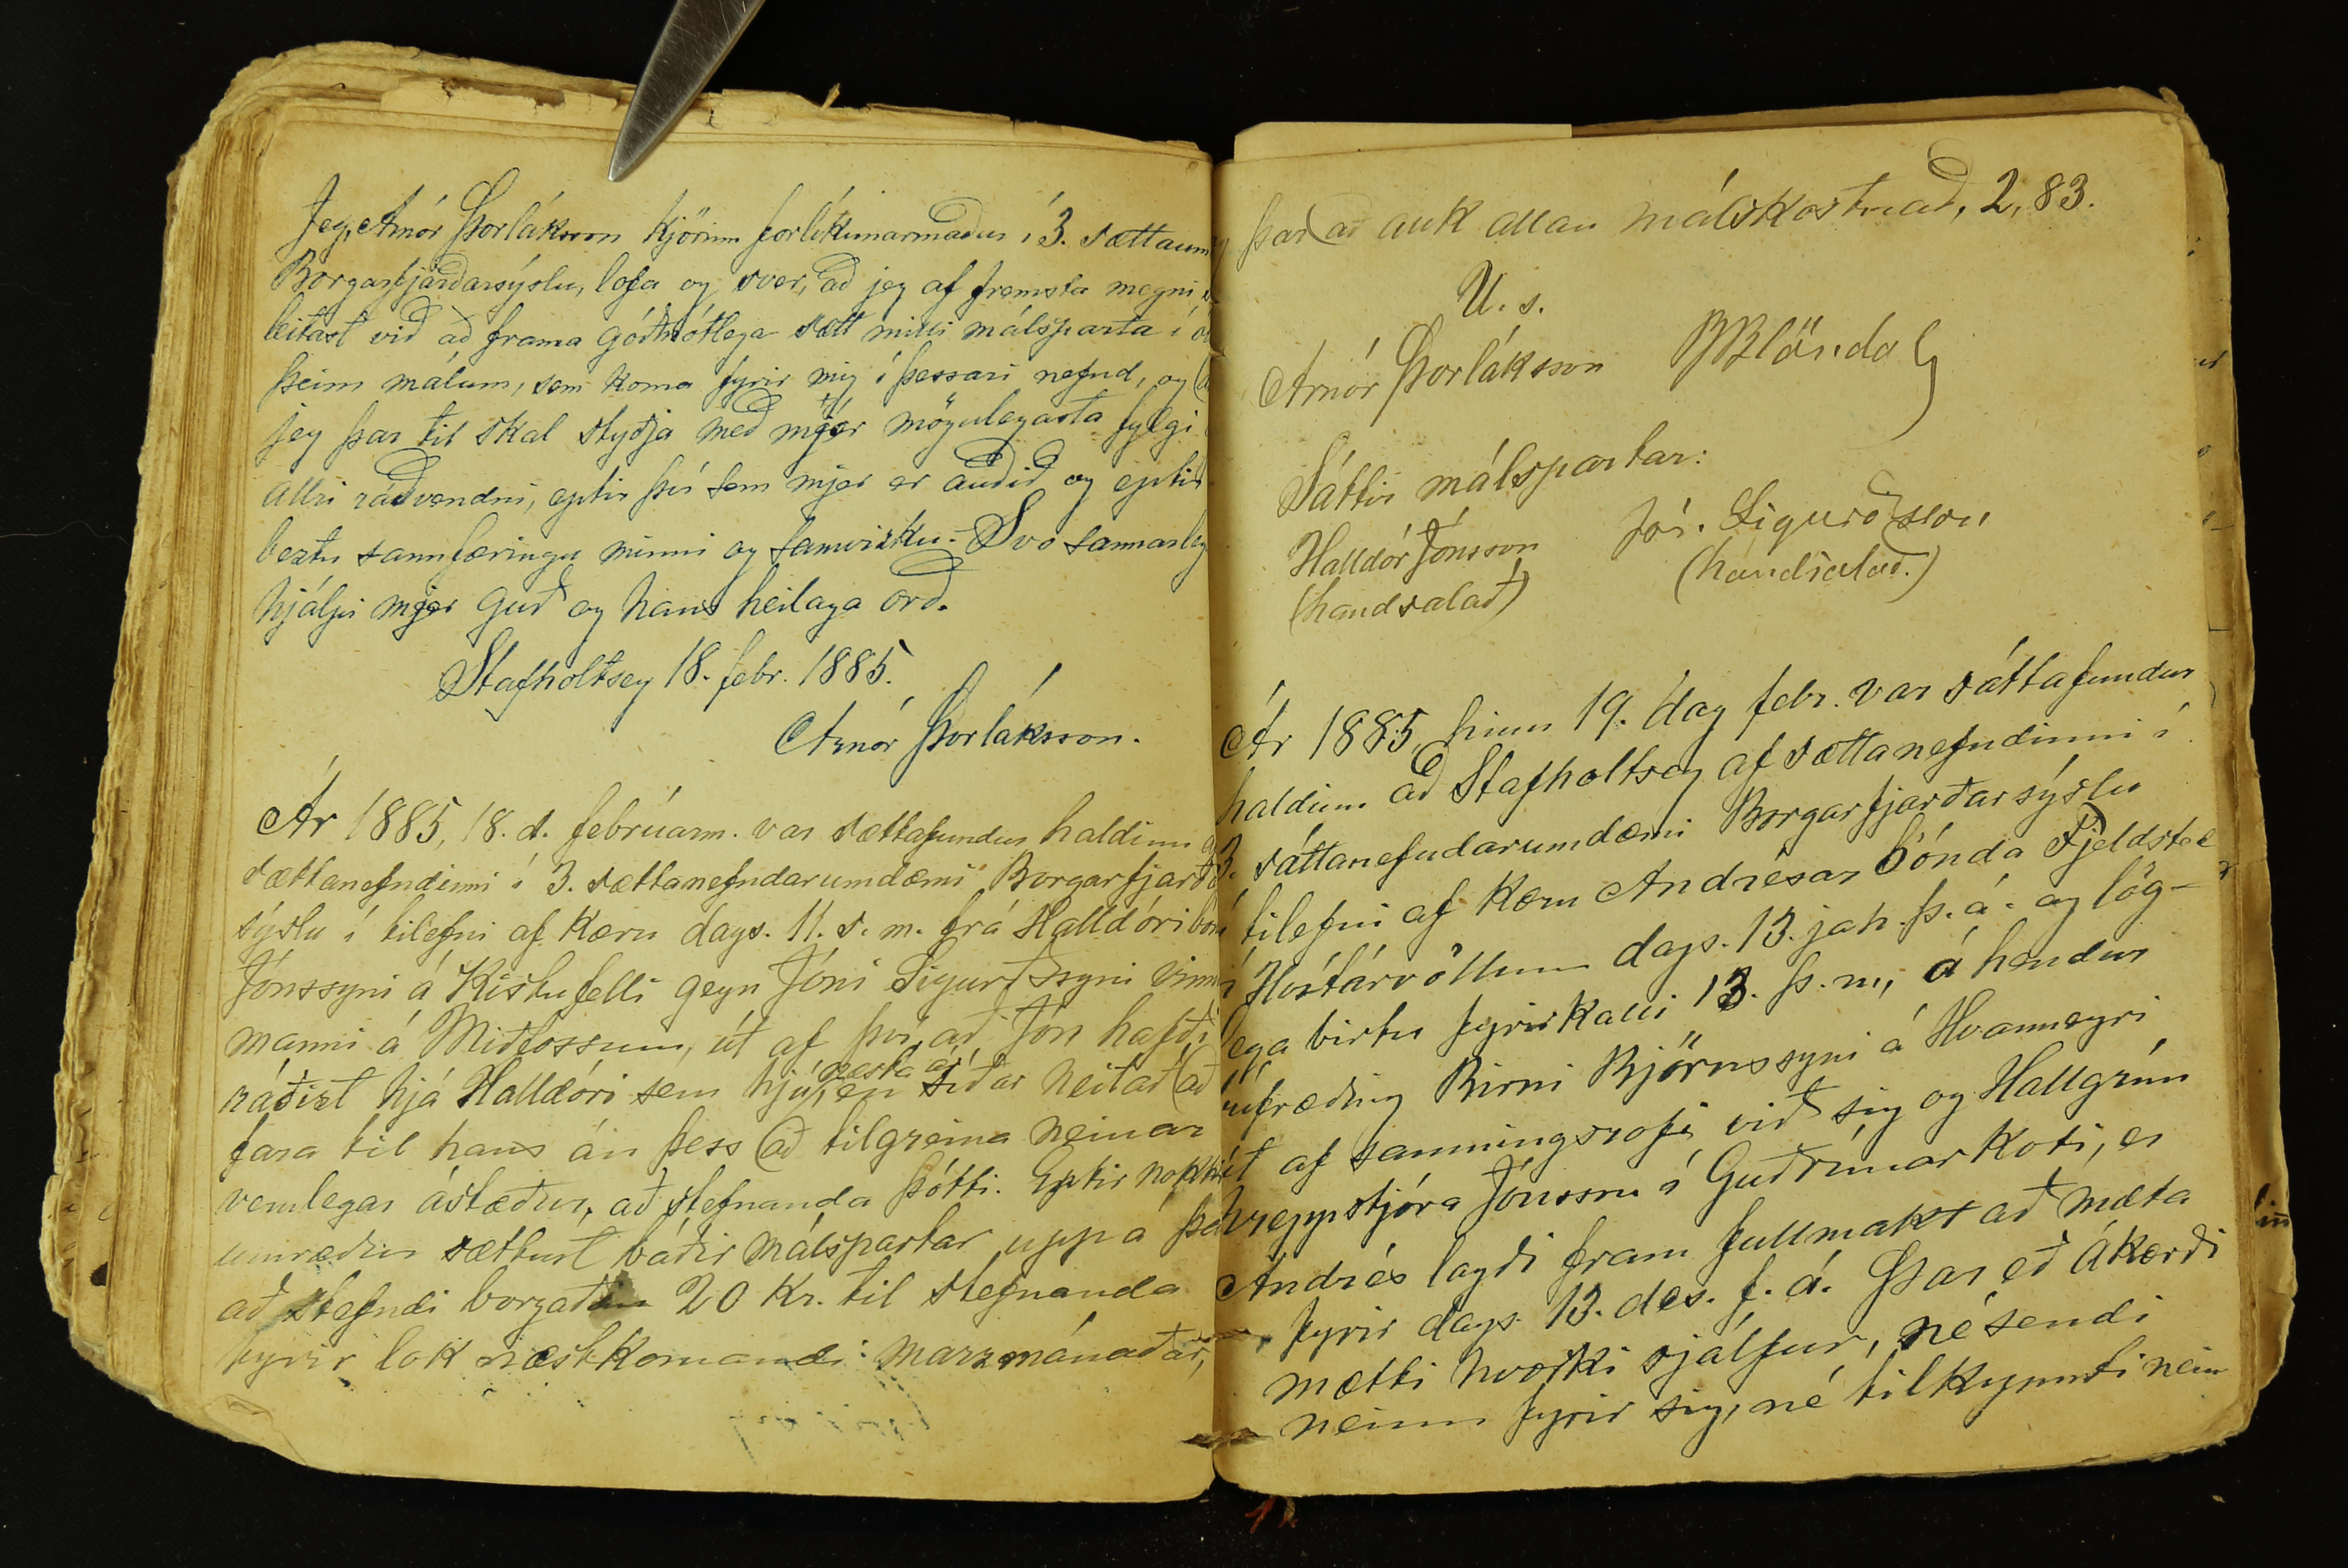 Jeg, Arnór Þorláksson kjörinn forlíkunarmaður í 3. sættaum
Borgarfjarðarsýslu, lofa og sver, að jeg af fremsta megni
leitast við að frama góðmótlega sætt milli málsparta í
þeim málum, sem koma fyrir mig í þessari nefnd, og
jeg þar til skal styðja með mjer mögulegasta fylgi
allri ráðvendni, eptir því sem mjer er auðið og eptir
beztu sannfæringu minni og samvizku. Svo sannarleg
hjálpi mjer Guð og hans heilaga orð.
Stafholtsey 18. febr. 1885.
Arnór Þorláksson.
Ár 1885, 18. d. febrúarm. var sættafundur haldinn
sættanefndinni í 3. sættanefndarumdæmi Borgarfjarð
sýslu í tilefni af kæru dags. 11. s. m. frá Halldóri
Jónssyni á Kistufelli gegn Jóni Sigurðssyni vinnu
manni á Miðfossum, út af því, að Jón hafði
næsta ár
ráðizt hjá Halldóri sem hjú, en síðar neitað að
fara til hans án þess að tilgreina neinar
verulegar ástæður, að stefnanda þótti. Eptir nokkr
umræður sættust báðir málspartar upp á það
að stefndi borgaði 20 kr. til stefnanda
fyrir lok næstkomandi marzmánaðar,
þar að auk allan málskostnað, 2,83.
U. s.
Arnór Þorláksson PBlöndal
Sáttir málspartar:
Halldór Jónsson Jón Sigurðsson
(handsalað) (handsalað.)
Ár 1885, hinn 19. dag febr. var sáttafundur
haldinn að Stafholtsey af sættanefndinni í
3. sáttanefndarumdæmi Borgarfjarðarsýslu
í tilefni af kæru Andrésar bónda Fjeldsteð
á Hvítárvöllum dags. 13. jan. þ. á. og lög-
lega birtu fyrirkalli 13. þ. m., á hendur
búfræðing Birni Björnssyni á Hvanneyri
út af samningsrofi við sig og Hallgrím
hreppstjóra Jónsson í Guðrúnarkoti, er
Andrés lagði fram fullmakt að mæta
fyrir dags. 13. des. f. á. Þar eð ákærði
mætti hvorki sjálfur, né sendi
neinn fyrir sig, né tilkynnti nein